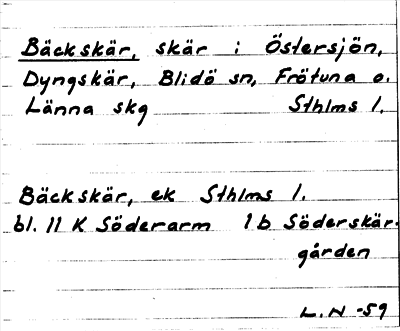 Bäckskär, skär i Östersjön,
Dyngskär, Blidö sn, Frötuna o.
Länna skg Sthlms l.
Bäckskär, ek Sthlms l.
bl. 11 K Söderarm 1b Söderskär-
gården
L.N -59